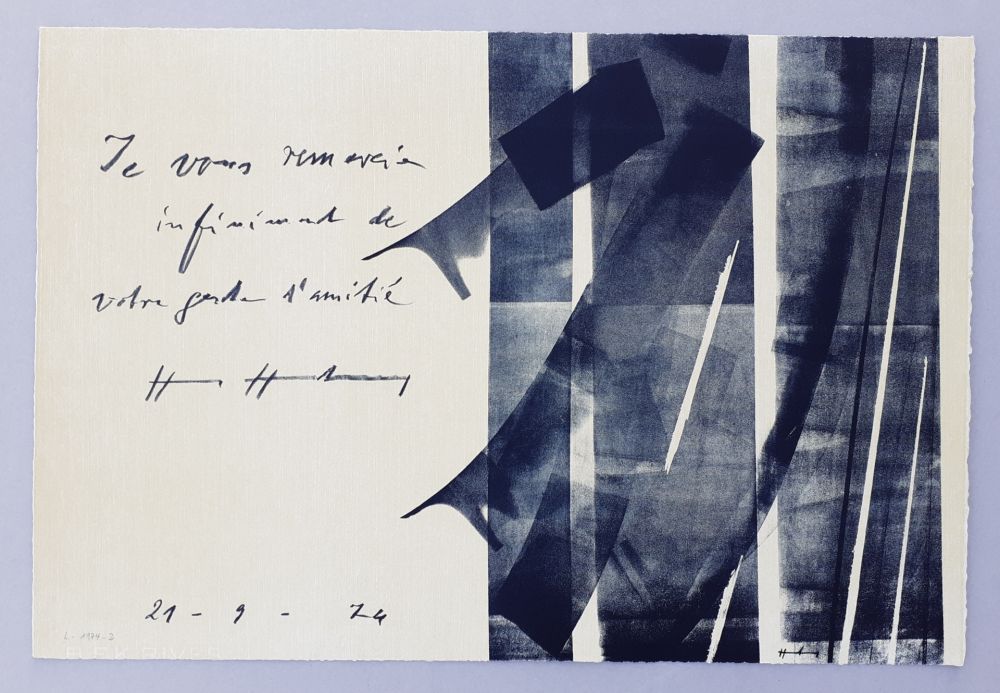 Je vous remercie
infiniment de
votre geste d'amitié
Hans Hartung
21 - 9 - 74
L-1974-2
BFK RIVES